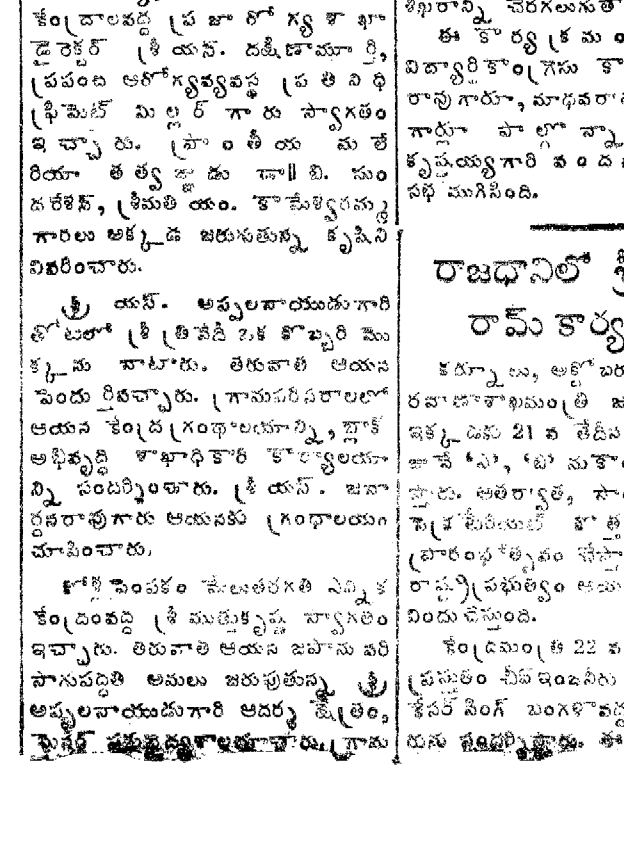 కేంద్రాలవద్ద ప్రజారోగ్యశాఖా
డైరెక్టర్ శ్రీ యన్. దక్షిణామూర్తి,
ప్రపంచ ఆరోగ్యవ్యవస్థ ప్రతినిధి
మిల్లర్ గారు స్వాగతం
ఇచ్చారు. ప్రాంతీయ మలే
రియా తత్వజ్ఞుడు డా॥ బి. సుం
దరేశన్, శ్రీమతి యం. కామేశ్వరమ్మ
గారలు అక్కడ జరుగుతున్న కృషిని
వివరించారు.
శ్రీ యస్. అప్పలనాయుడుగారి
తోటలో శ్రీ త్రివేది ఒక కొబ్బరి మొ
క్కను నాటారు. తరువాత ఆయన
గ్రామపరిసరాలలో
ఆయన కేంద్రగ్రంథాలయాన్ని, బ్లాక్
అభివృద్ధి శాఖాధికారి కార్యాలయా
న్ని సందర్శించారు. శ్రీ యస్. జనా
ర్దనరావుగారు ఆయనకు గ్రంథాలయం
చూపించారు.
కోళ్ల పెంపకం మేలుతరగతి ఎన్నిక
కేంద్రంవద్ద శ్రీ ముత్తుకృష్ణ స్వాగతం
ఇచ్చారు. తరువాత ఆయన జపాను వరి
సాగుపద్ధతి అమలు జరుపుతున్న శ్రీ
అప్పలనాయుడుగారి ఆదర్శ క్షేత్రం,
గ్రామ
చెరగలుగుతా
ఈ కార్యక్రమం
విద్యార్థికాంగ్రెసు కా
రావుగారూ, మాధవరా
గార్లూ పాల్గొన్నా
కృష్ణయ్యగారి వందన
సభ ముగిసింది.
రాజధానిలో శ్రీ
రామ్ కార్య
కర్నూలు, అక్టోబరు
రవాణాశాఖమంత్రి జ
ఇక్కడకు 21 వ తేదీన
స్తారు. ఆతర్వాత, సా
సెక్రటేరియట్ కొత్త
ప్రారంభోత్సవం చేస్తా
రాష్ట్రప్రభుత్వం ఆయ
విందుచేస్తుంది.
కేంద్రమంత్రి 22 వ
ప్రస్తుతం చీఫ్ఇంజనీరు
కేసర్ సింగ్ బంగళావద్ద
రును సందర్శిస్తారు. ఈ